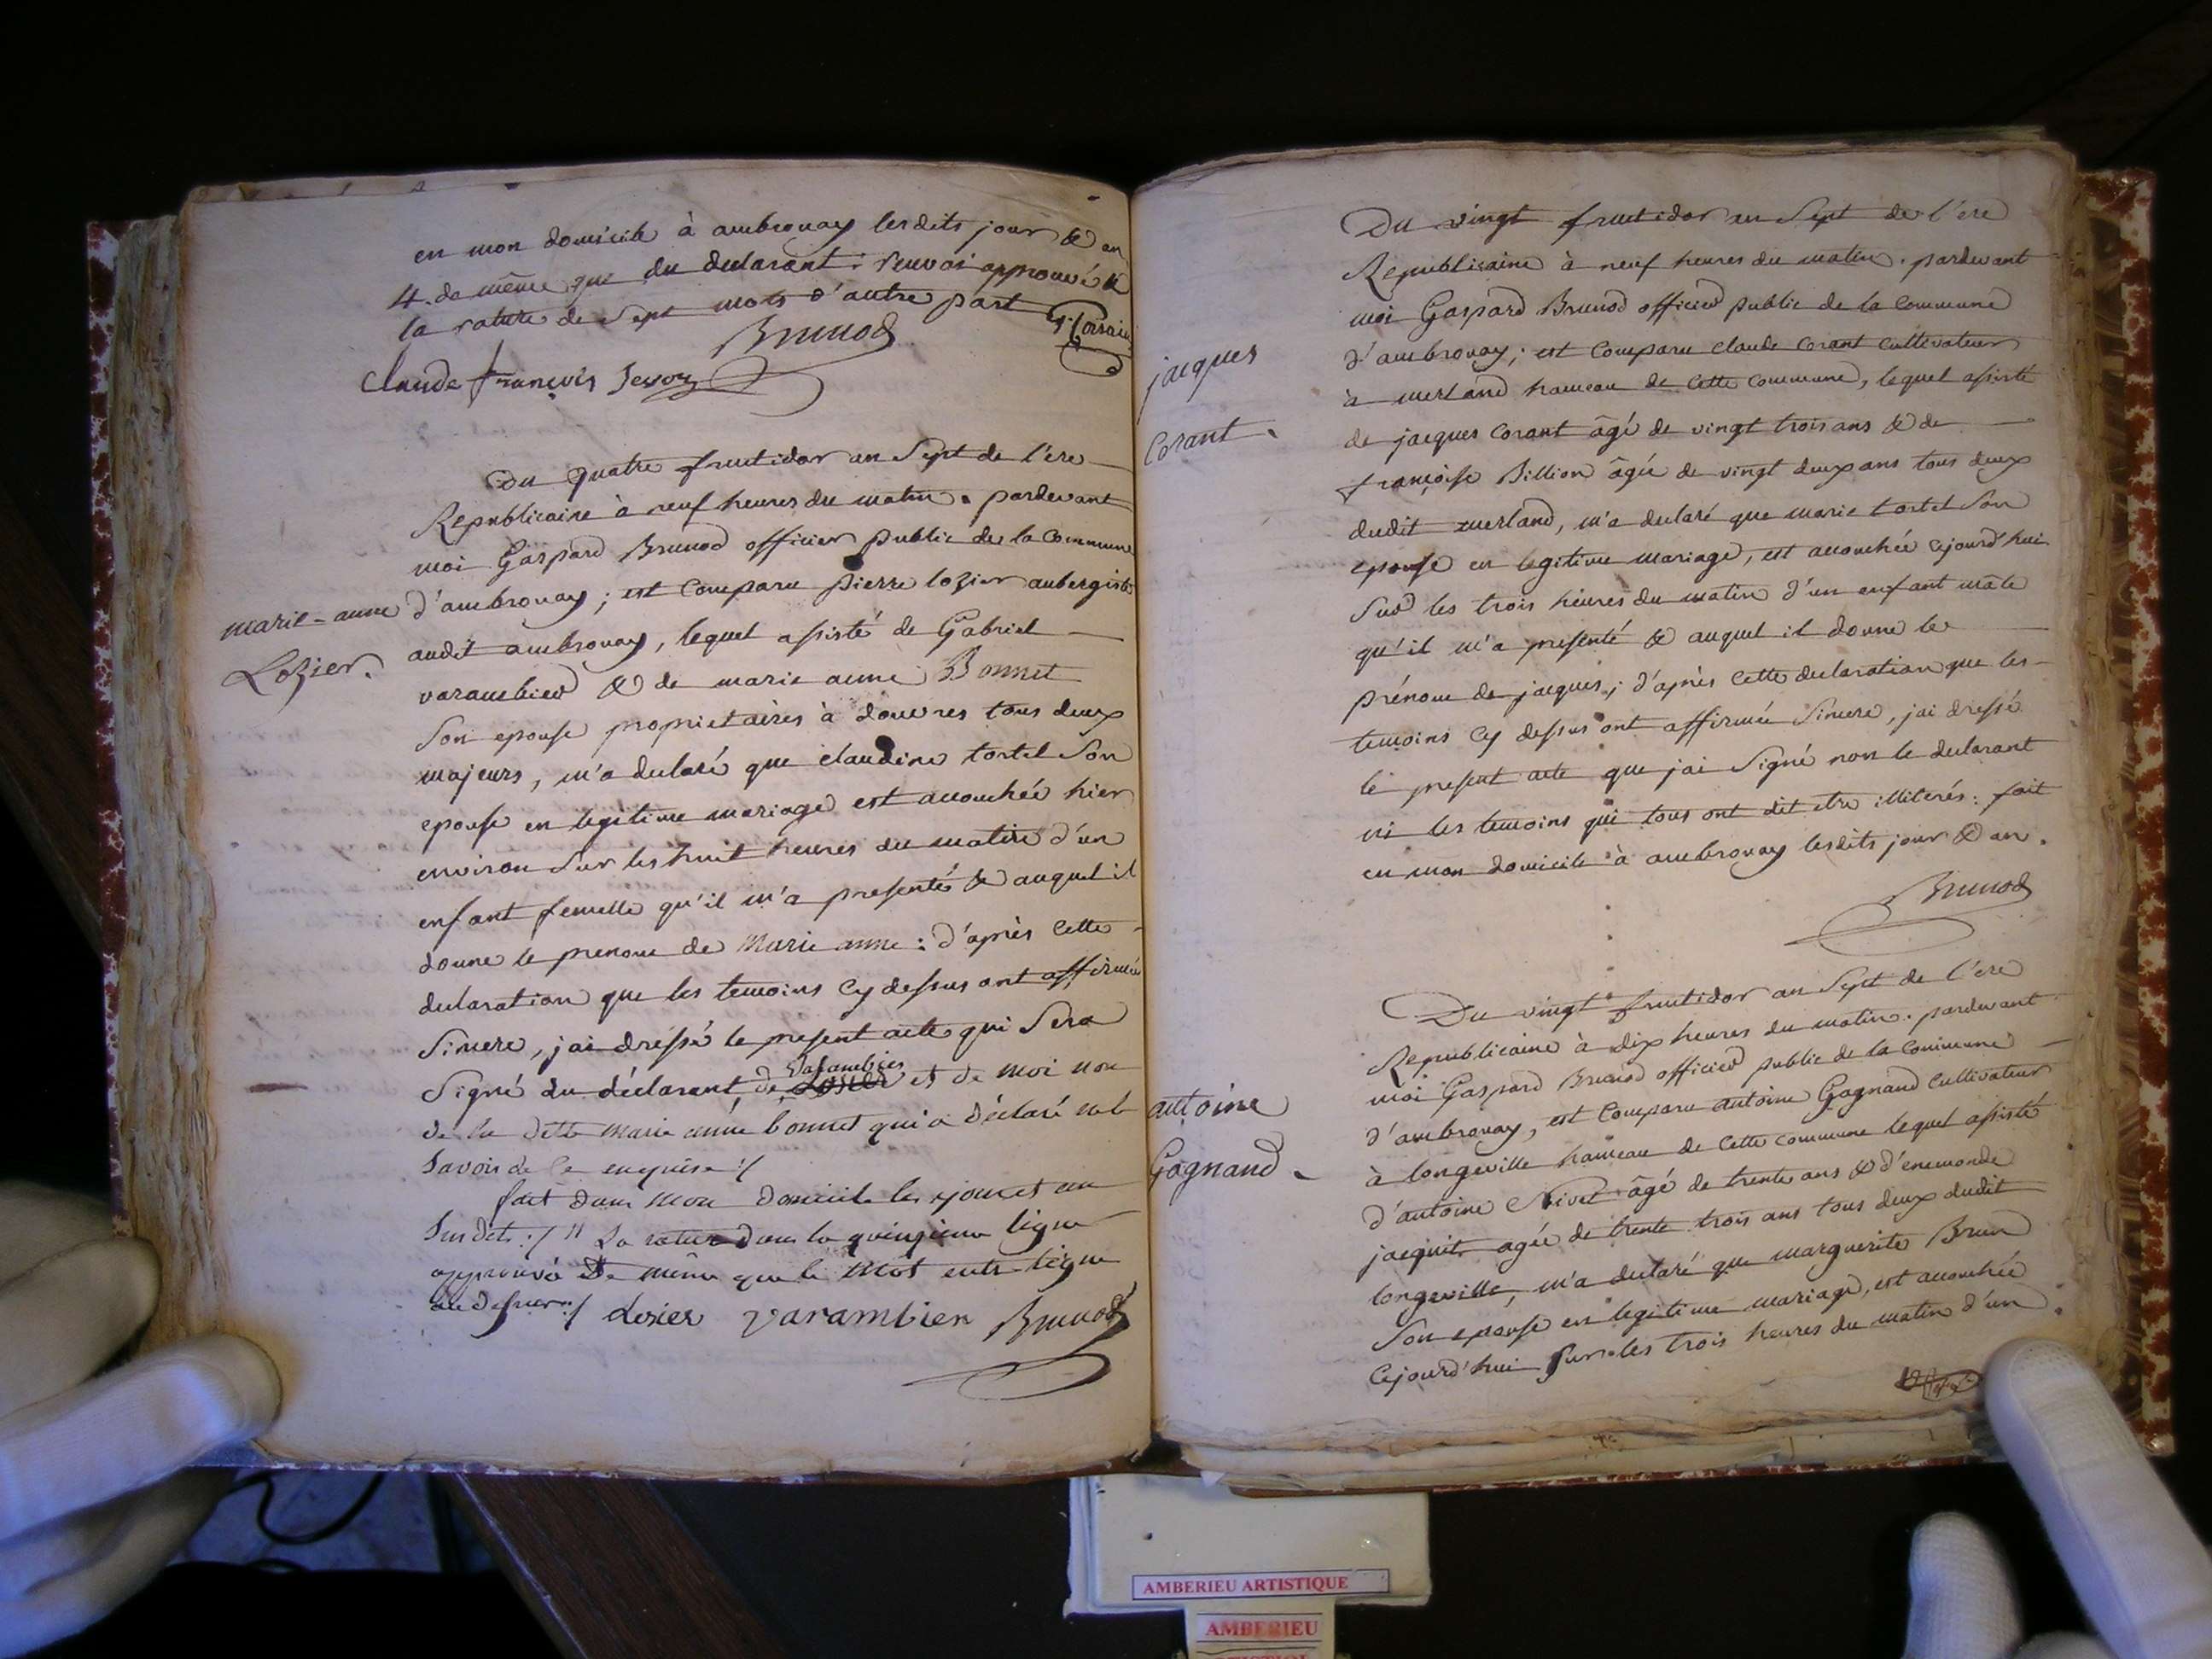 en mon domicile à ambronay lesdits jour & an
4. de même que du declarant : renvoi approuvé &
la rature de Sept mots d'autre part
Brunod
Claude françois
Du quatre fructidor an Sept de l'ere
Republicaine à neuf heures du matin. pardevant
moi Gaspard Brunod officier public de la Commune
marie-anne
Lozier.
d'ambronay ; est Comparu pierre lozier aubergiste
audit ambronay, lequel assisté de Gabriel
varambier & de marie anne Bonnet
Son epouse proprietaires à douvres tous deux
majeurs, m'a declaré que claudine tortel Son
epouse en legitime mariage est accouchée hier
environ Sur les huit heures du matin d'un
enfant femelle qu'il m'a presenté & auquel il
donne le prenom de Marie anne : d'après Cette
declaration que les temoins Cy dessus ont affirmée
Sincere, j'ai dressé le present acte qui Sera
Varambier
Signé du déclarant, de Losier et de moi non
de la ditte marie anne bonnet qui a déclaré ne le
Savoir de ce enquise ./
fait dans mon domicile les jour et an
Susdits ./ // La rature dans la quinzieme ligne
approuvée de même que le mot entre ligne
au dessus ./ Losier varambier Brunod
Du vingt fructidor an Sept de l'ere
Republicaine à neuf heures du matin. pardevant
moi Gaspard Brunod officier public de la Commune
jacques
Corant.
d'ambronay ; est Comparu claude Corant Cultivateur
à merland hameau de Cette Commune, lequel assisté
de jacques Corant âgé de vingt trois ans & de
françoise Billion âgée de vingt deux ans tous deux
dudit merland, m'a declaré que marie tortel Son
epouse en legitime mariage, est accouchée cejourd'hui
Sur les trois heures du matin d'un enfant mâle
qu'il m'a presenté & auquel il donne le
prénom de jacques ; d'après Cette declaration que les
temoins Cy dessus ont affirmée Sincere, j'ai dressé
le present acte que j'ai Signé non le declarant
ni les temoins qui tous ont dit etre illiterés : fait
en mon domicile à ambronay lesdits jour & an.
Brunod
Du vingt fructidor an Sept de l'ere
Republicaine à dix heures du matin. pardevant
moi Gaspard Brunod officier public de la Commune
antoine
Gagnand.
d'ambronay, est Comparu antoine Gagnand Cultivateur
à longeville hameau de Cette commune lequel assisté
d'antoine Nivet âgé de trente ans & d'enemonde
jacquit agée de trente trois ans tous deux dudit
longeville, m'a declaré que marguerite Brun
Son epouse en legitime mariage, est accouchée
Cejourd'hui Sur les trois heures du matin d'un
AMBERIEU ARTISTIQUE
AMBERIEU